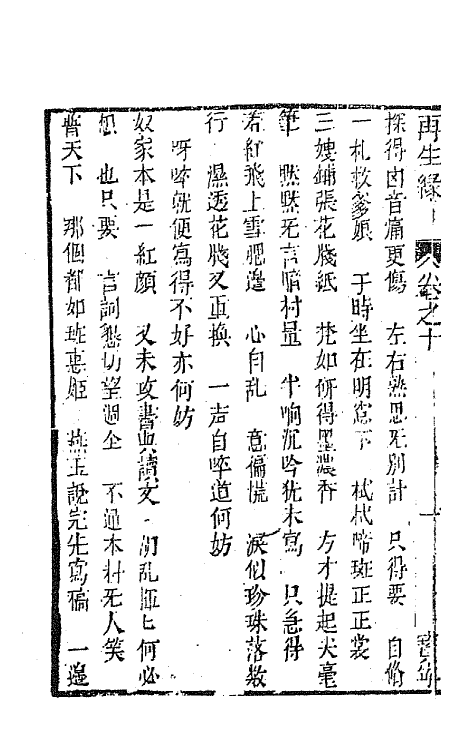 再生緣 卷之十 十
探得凶音痛更傷 左右熟思死別計 只得要 自修
一札救爹娘 于時坐在明窓下 拭拭啼斑正正裳
三嫂鋪張花牋紙 梵如研得墨濃香 方才提起尖毫
筆 默默无言暗村量 半晌沉吟犹未寫 只急得
若紅飛上雪肥邉 心自乱 意偏慌 淚似珍珠落数
行 濕透花牋又重換 一声自啐道何妨
呀啐就便寫得不好亦何妨
奴家本是一紅顏 又未攻書與讀文 胡乱 何必
想 也只要 言詞懇切望週全 不通本料无人笑
普天下 那個都如班惠姬 燕玉說完先寫稿 一邉